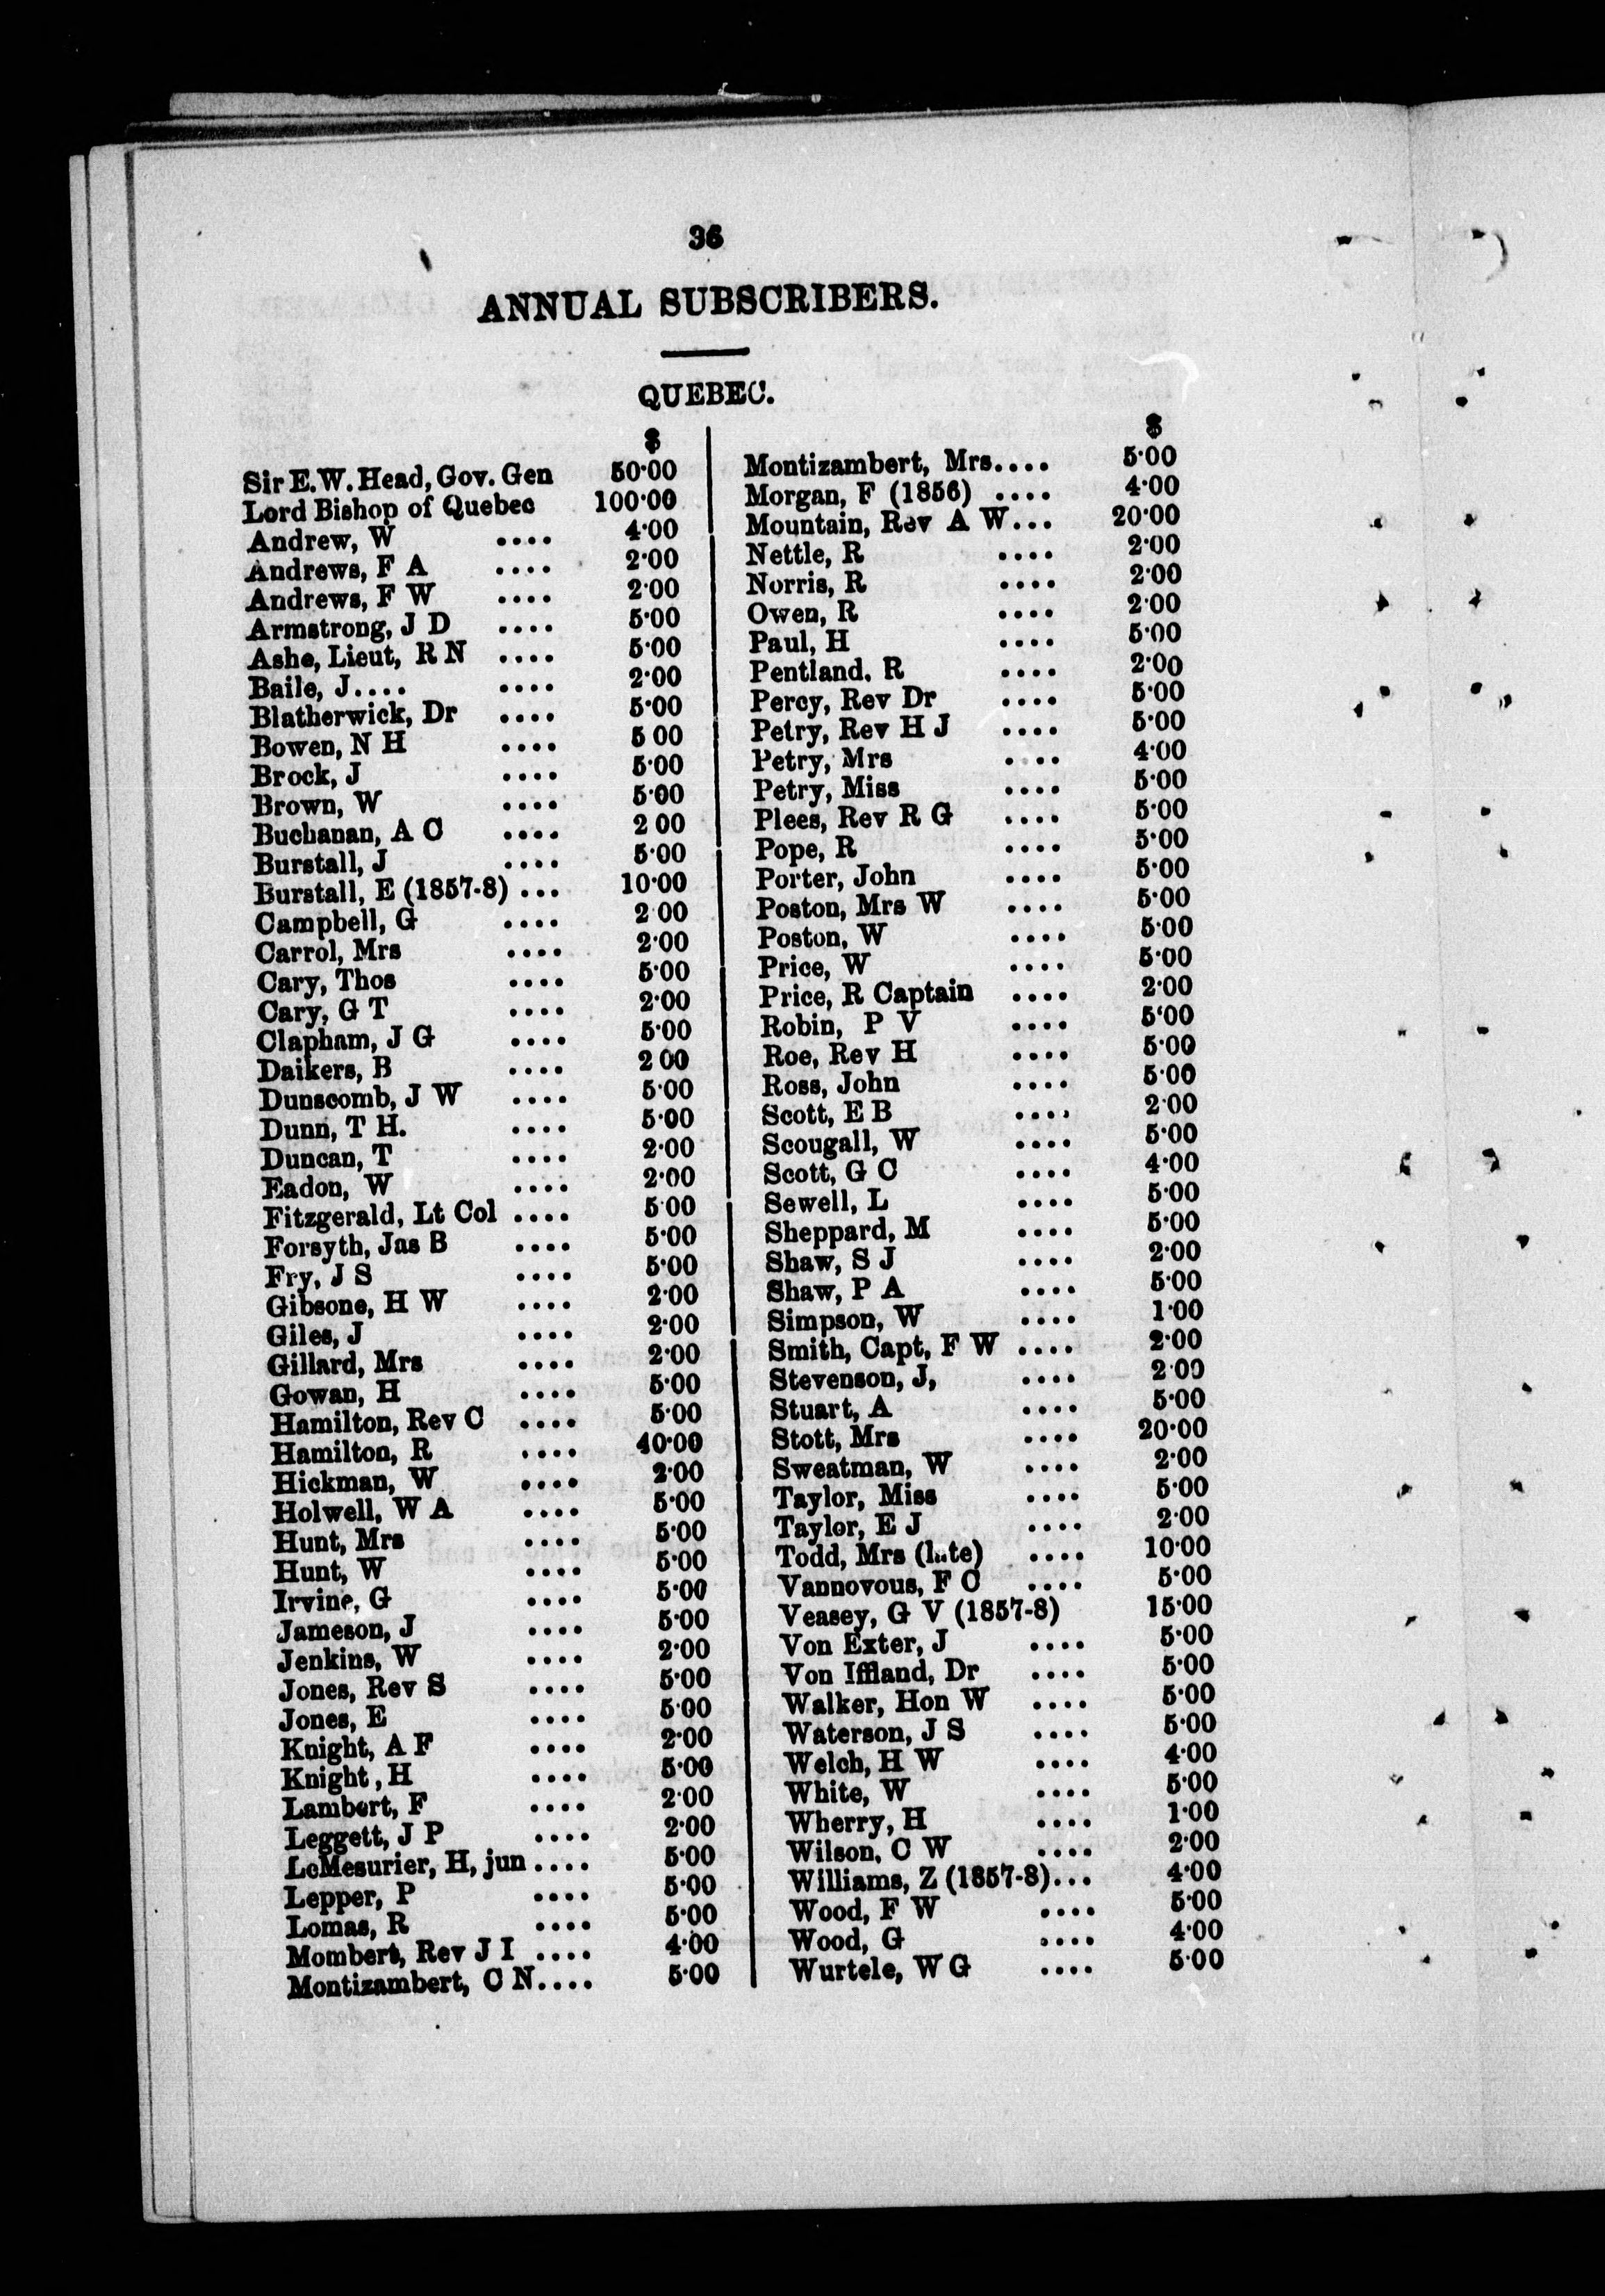 36
ANNUAL SUBSCRIBERS.
QUEBEC.
$
Sir E.W. Head, Gov. Gen 50·00
Lord Bishop of Quebec 100·00
Andrew, W .... 4·00
Andrews, F A .... 2·00
Andrews, F W .... 2·00
Armstrong, J D .... 5·00
Ashe, Lieut, R N .... 5·00
Baile, J.... .... 2·00
Blatherwick, Dr .... 5·00
Bowen, N H .... 5 00
Brock, J .... 5·00
Brown, W .... 5·00
Buchanan, A C .... 2 00
Burstall, J .... 5·00
Burstall, E (1857-8) ... 10·00
Campbell, G .... 2 00
Carrol, Mrs .... 2·00
Cary, Thos .... 5·00
Cary, G T .... 2·00
Clapham, J G .... 5·00
Daikers, B .... 2 00
Dunscomb, J W .... 5·00
Dunn, T H. .... 5·00
Duncan, T .... 2·00
Eadon, W .... 2·00
Fitzgerald, Lt Col .... 5·00
Forsyth, Jas B .... 5·00
Fry, J S .... 5·00
Gibsone, H W .... 2·00
Giles, J .... 2·00
Gillard, Mrs .... 2·00
Gowan, H .... 5·00
Hamilton, Rev C .... 5·00
Hamilton, R .... 40·00
Hickman, W .... 2·00
Holwell, W A .... 5·00
Hunt, Mrs .... 5·00
Hunt, W .... 5·00
Irvine, G .... 5·00
Jameson, J .... 5·00
Jenkins, W .... 2·00
Jones, Rev S .... 5·00
Jones, E .... 5·00
Knight, A F .... 2·00
Knight, H .... 5·00
Lambert, F .... 2·00
Leggett, J P .... 2·00
LeMesurier, H, jun .... 5·00
Lepper, P .... 5·00
Lomas, R .... 5·00
Mombert, Rev J I .... 4·00
Montizambert, C N.... 5·00
$
Montizambert, Mrs.... 5·00
Morgan, F (1856) .... 4·00
Mountain, Rev A W... 20·00
Nettle, R .... 2·00
Norris, R .... 2·00
Owen, R .... 2·00
Paul, H .... 5·00
Pentland, R .... 2·00
Percy, Rev Dr .... 5·00
Petry, Rev H J .... 5·00
Petry, Mrs .... 4·00
Petry, Miss .... 5·00
Plees, Rev R G .... 5·00
Pope, R .... 5·00
Porter, John .... 5·00
Poston, Mrs W .... 5·00
Poston, W .... 5·00
Price, W .... 5·00
Price, R Captain .... 2·00
Robin, P V .... 5·00
Roe, Rev H .... 5·00
Ross, John .... 5·00
Scott, E B .... 2·00
Scougall, W .... 5·00
Scott, G C .... 4·00
Sewell, L .... 5·00
Sheppard, M .... 5·00
Shaw, S J .... 2·00
Shaw, P A .... 5·00
Simpson, W .... 1·00
Smith, Capt, F W .... 2·00
Stevenson, J, .... 2·00
Stuart, A .... 5·00
Stott, Mrs .... 20·00
Sweatman, W .... 2·00
Taylor, Miss .... 5·00
Taylor, E J .... 2·00
Todd, Mrs (late) .... 10·00
Vannovous, F C .... 5·00
Veasey, G V (1857-8) 15·00
Von Exter, J .... 5·00
Von Iffland, Dr .... 5·00
Walker, Hon W .... 5·00
Waterson, J S .... 5·00
Welch, H W .... 4·00
White, W .... 5·00
Wherry, H .... 1·00
Wilson, C W .... 2·00
Williams, Z (1857-8)... 4·00
Wood, F W .... 5·00
Wood, G .... 4·00
Wurtele, W G .... 5·00